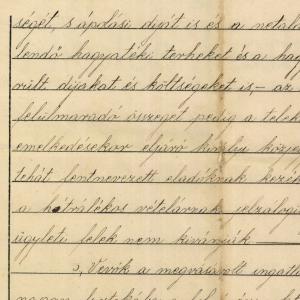 ségét, s ápolási díját is és a netalá
lendő hagyatéki terheket és a hagy
rült díjakat és költségeket is, – az
felülmaradó összeget pedig a telek
emelkedésekor eljáró királyi közje
tehát fentnevezett eladóknak kezéh
a hátrálékos vételárnak jelzálogi
ügyleti felek nem kivánják –
Vevők a megvásárolt ingatl